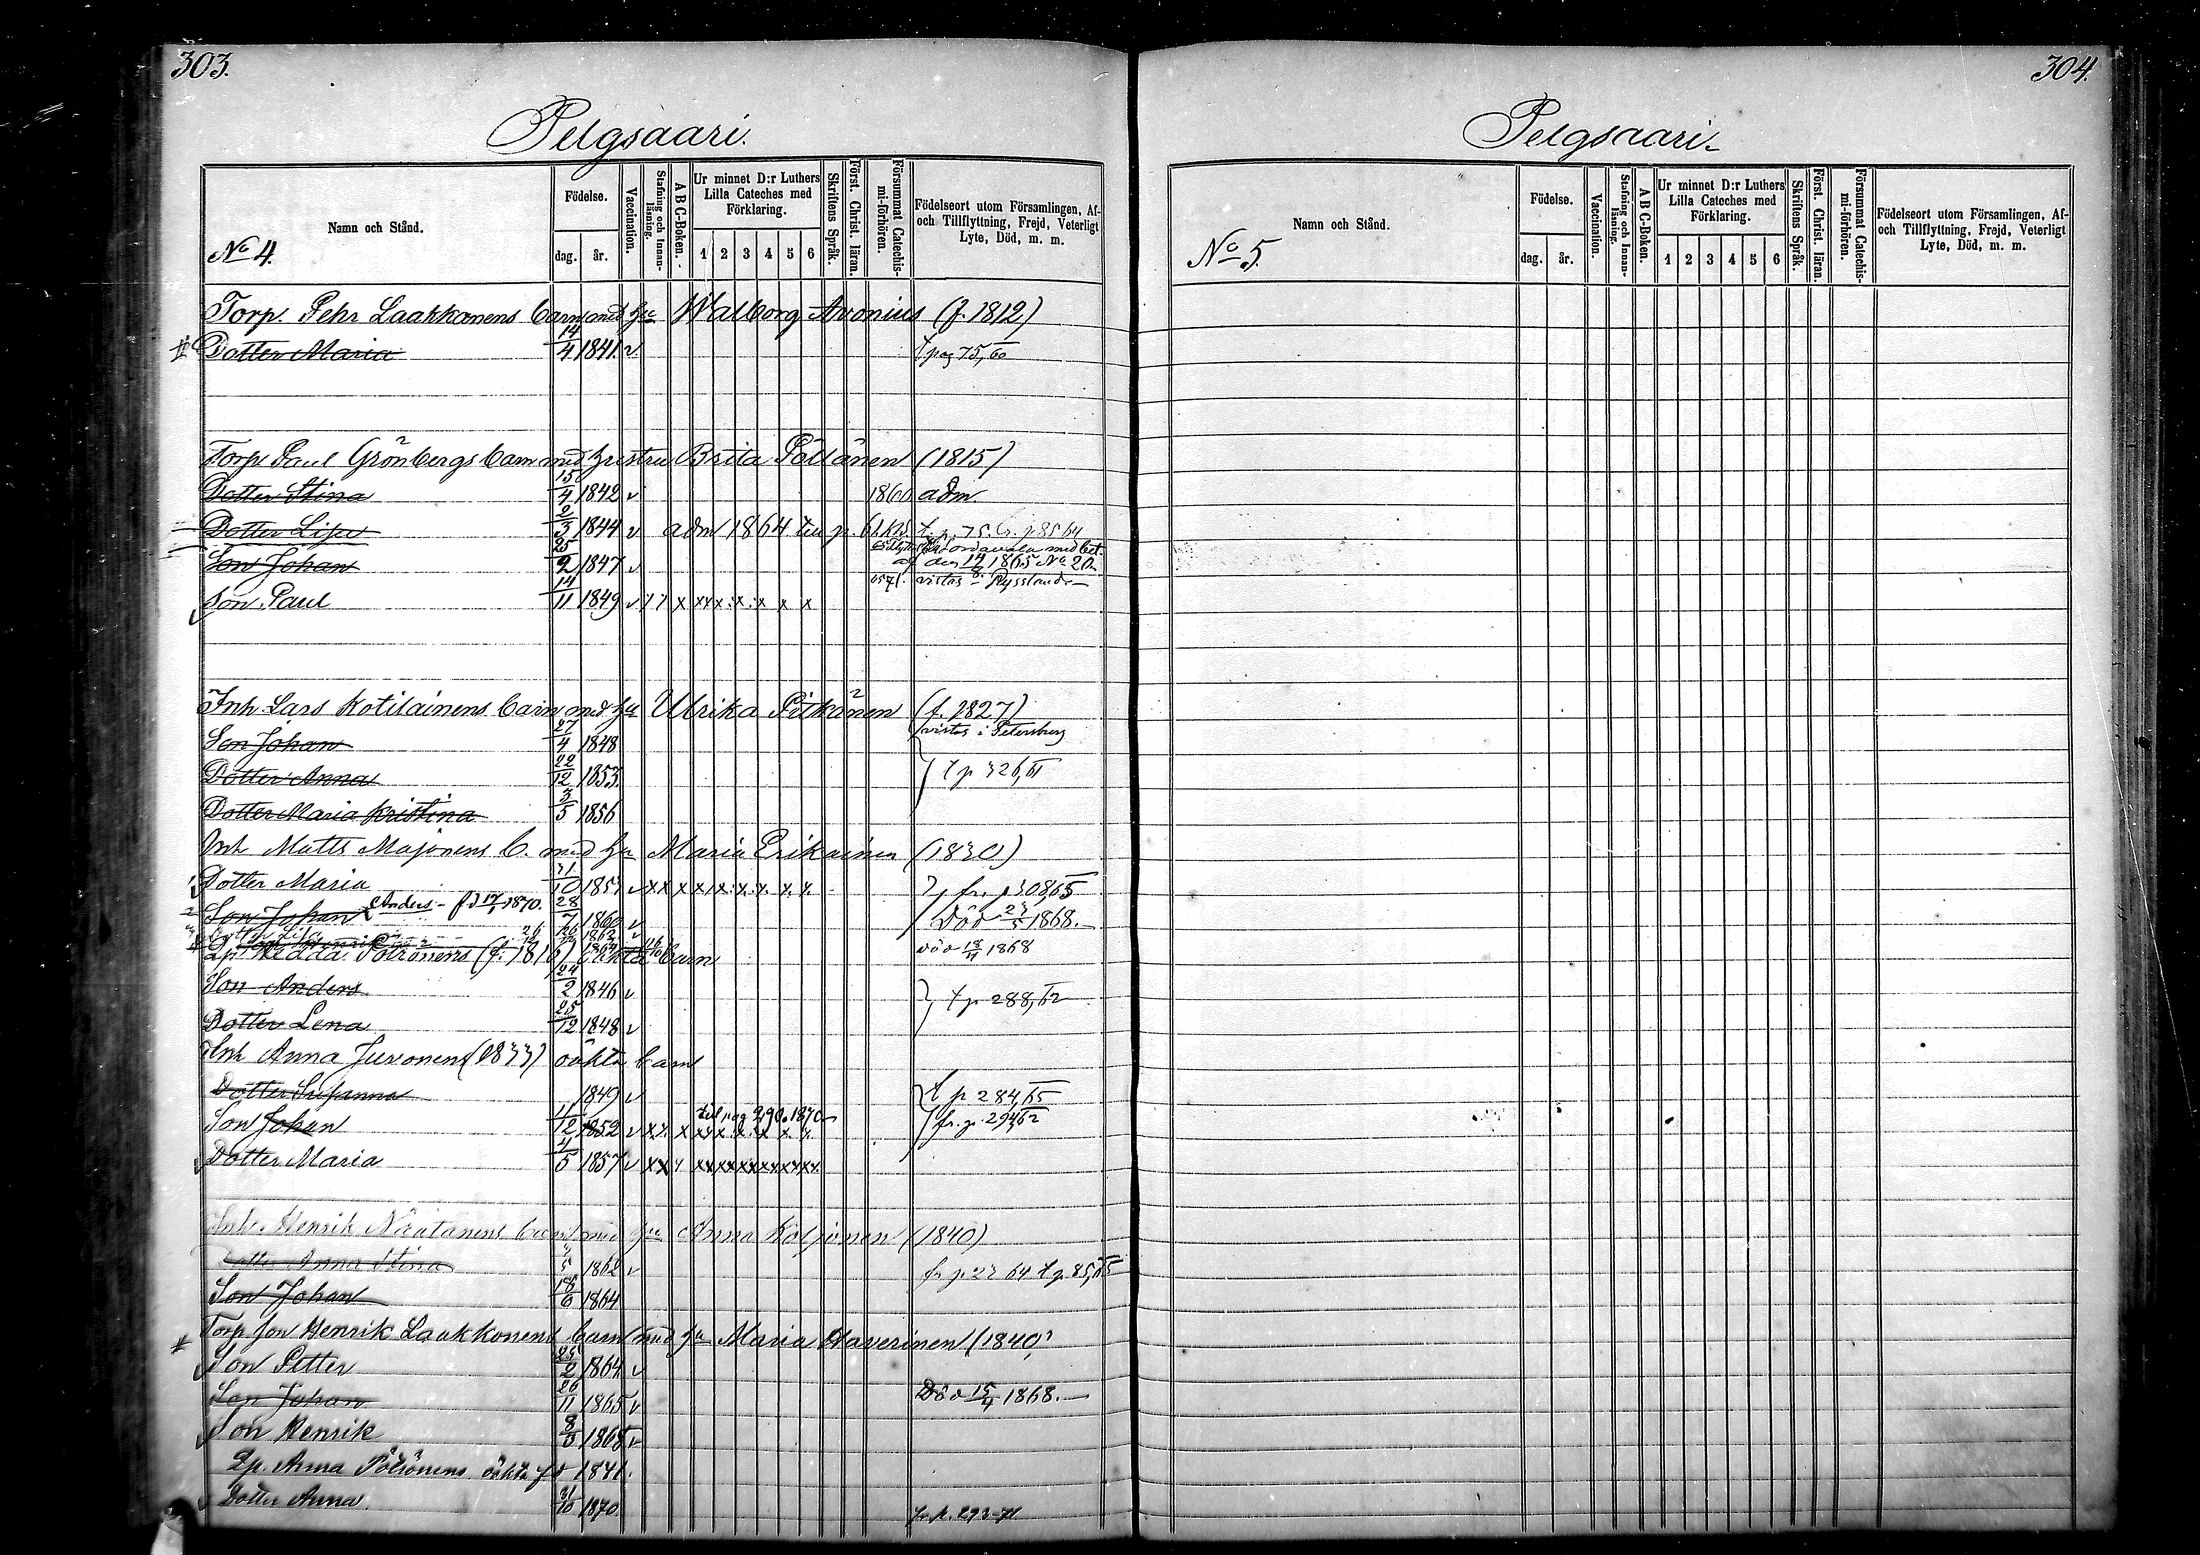 303.
Pelgsaari.
Namn och Stånd.
No 4.
Födelse.
dag. år.
Vaccination.
Stafning och Innanläsning.
A B C-Boken.
Ur minnet D:r Luthers Lilla Cateches med Förklaring.
1 2 3 4 5 6
Skriftens Språk.
Först. Christ. läran.
Försummat Catechismi-förhören.
Födelseort utom Församlingen, Af- och Tillflyttning, Frejd, Veterligt Lyte, Död, m. m.
Torp. Pehr Laakkonens barn med hu Walborg Avonius (f. 1812)
Dotter Maria 14/4 1841 v t pag 75,60
Torp Paul Grönbergs barn med hustru Brita Pöllänen (1815)
Dotter Stina 15/4 1842 v 1860 adm
Dotter Lisa 2/3 1844 v adm 1864
Son Johan 25/2 1847 v
af den 14/8 1865 No 20
vistas i Ryssland
Son Paul 14/11 1849 v x x x x x x x
Inh Lars Kotilainens barn med hu Ulrika Pitkänen (f. 1827)
Son Johan 27/4 1848 vistas i Petersburg
Dotter Anna 22/12 1853 t p 326,61
Dotter Maria Kristina 3/5 1856
Inh Matts Majonens b. med hu Maria Erikainen (1830)
Dotter Maria 31/10 1857 v x x x x x x x x x fr. p 308,65
Son Johan 28/7 1860 v Död 23/5 1868.
Anders f d 17/7 1870.
Dotter Lisa 1862 v
Död 18/11 1868
Lp Hedda Pölönens (f. 1816) oäkta barn
Son Anders 24/2 1846 v t p 288,62
Dotter Lena 25/12 1848 v
Inh Anna Juvonens (1833) oäkta barn
Dotter Susanna 1849 v t p 284,65
Son Johan 11/12 1852 v x x x x x x x x x fr. p. 294,62
till pag 290. 1870
Dotter Maria 4/5 1857 v x x x x x x x x x
Inh. Henrik Näätänens barn med hu Anna Koljonen (1840)
Dotter Anna Stina 1862 v fr p 23 64 t p. 85,65
Son Johan 18/6 1864
Torp son Henrik Laakkonens barn med hu Maria Haverinen (1840)
Son Petter 25/2 1864 v
Son Johan 26/11 1865 v Död 15/4 1868.
Son Henrik 8/3 1868 v
Lp. Anna Pölönens oäkta fd 1841.
Dotter Anna 31/10 1870. fr p. 293-71
304.
Pelgsaari.
Namn och Stånd.
No 5.
Födelse.
dag. år.
Vaccination.
Stafning och Innanläsning.
A B C-Boken.
Ur minnet D:r Luthers Lilla Cateches med Förklaring.
1 2 3 4 5 6
Skriftens Språk.
Först. Christ. läran.
Försummat Catechismi-förhören.
Födelseort utom Församlingen, Af- och Tillflyttning, Frejd, Veterligt Lyte, Död, m. m.